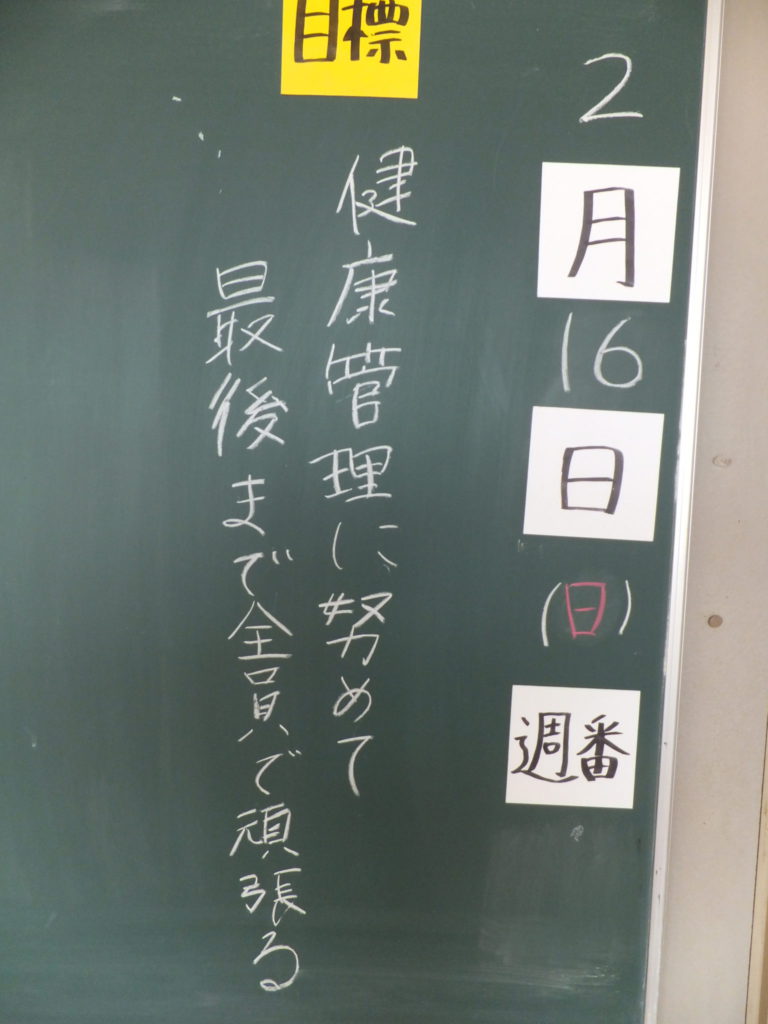 2月16日(日)
週番
目標
健康管理に努めて
最後まで全員で頑張る